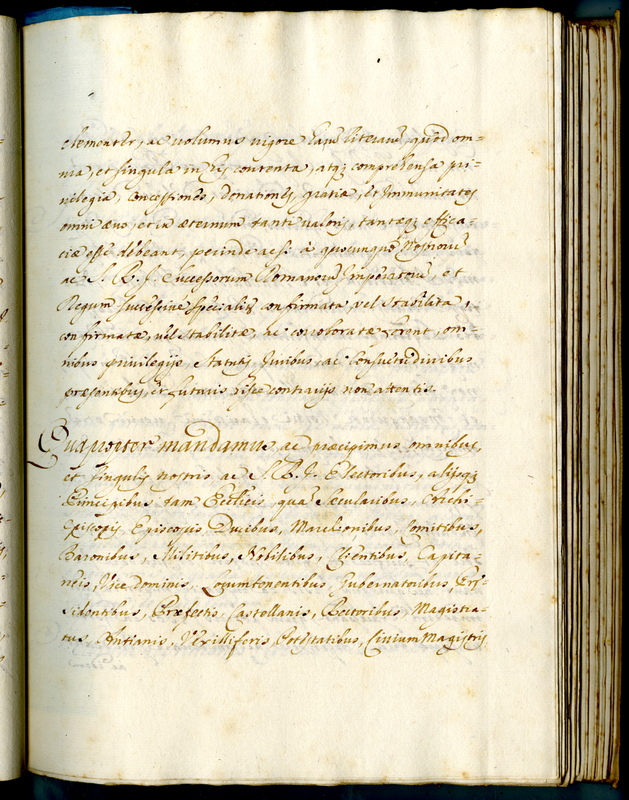 clementer, ac volumus vigore harũ literarũ, quod om=
nia, et singula in his contenta, atq; comprehensa pri=
vilegia, concessiones, donationes, gratiæ, et Immunitates
omni ævo, et in æternum tanti valoris, tantæq; effica=
ciæ esse debeant, perinde acsi à quocunque Nostrorũ
ac S. R. I. successorum Romanorũ Imperatorũ, et
Regum successive specialiter confirmata vel stabilita,
confirmatæ, vel stabilitæ, ac corroboratæ forent, om=
nibus privilegijs, statutis, Iuribus, ac Consuetudinibus
præsentibus, et futuris istis contrarijs non attentis.
Quapropter mandamus ac præcipimus omnibus,
et singulis nostris ac S. R. I. Electoribus, alijsq;
Principibus tam Ecclicis quã Sæcularibus, Archi=
Episcopis Episcopis Ducibus, Marchionibus, Comitibus,
Baronibus, Militibus, Nobilibus, Clientibus, Capita=
neis, Vice dominis, Locumtenentibus Gubernatoribus, Præ=
sidentibus, Præfectis, Castellanis, Rectoribus, Magistra=
tus, Antianis, Vexilliferis Potestatibus, Civium Magistris